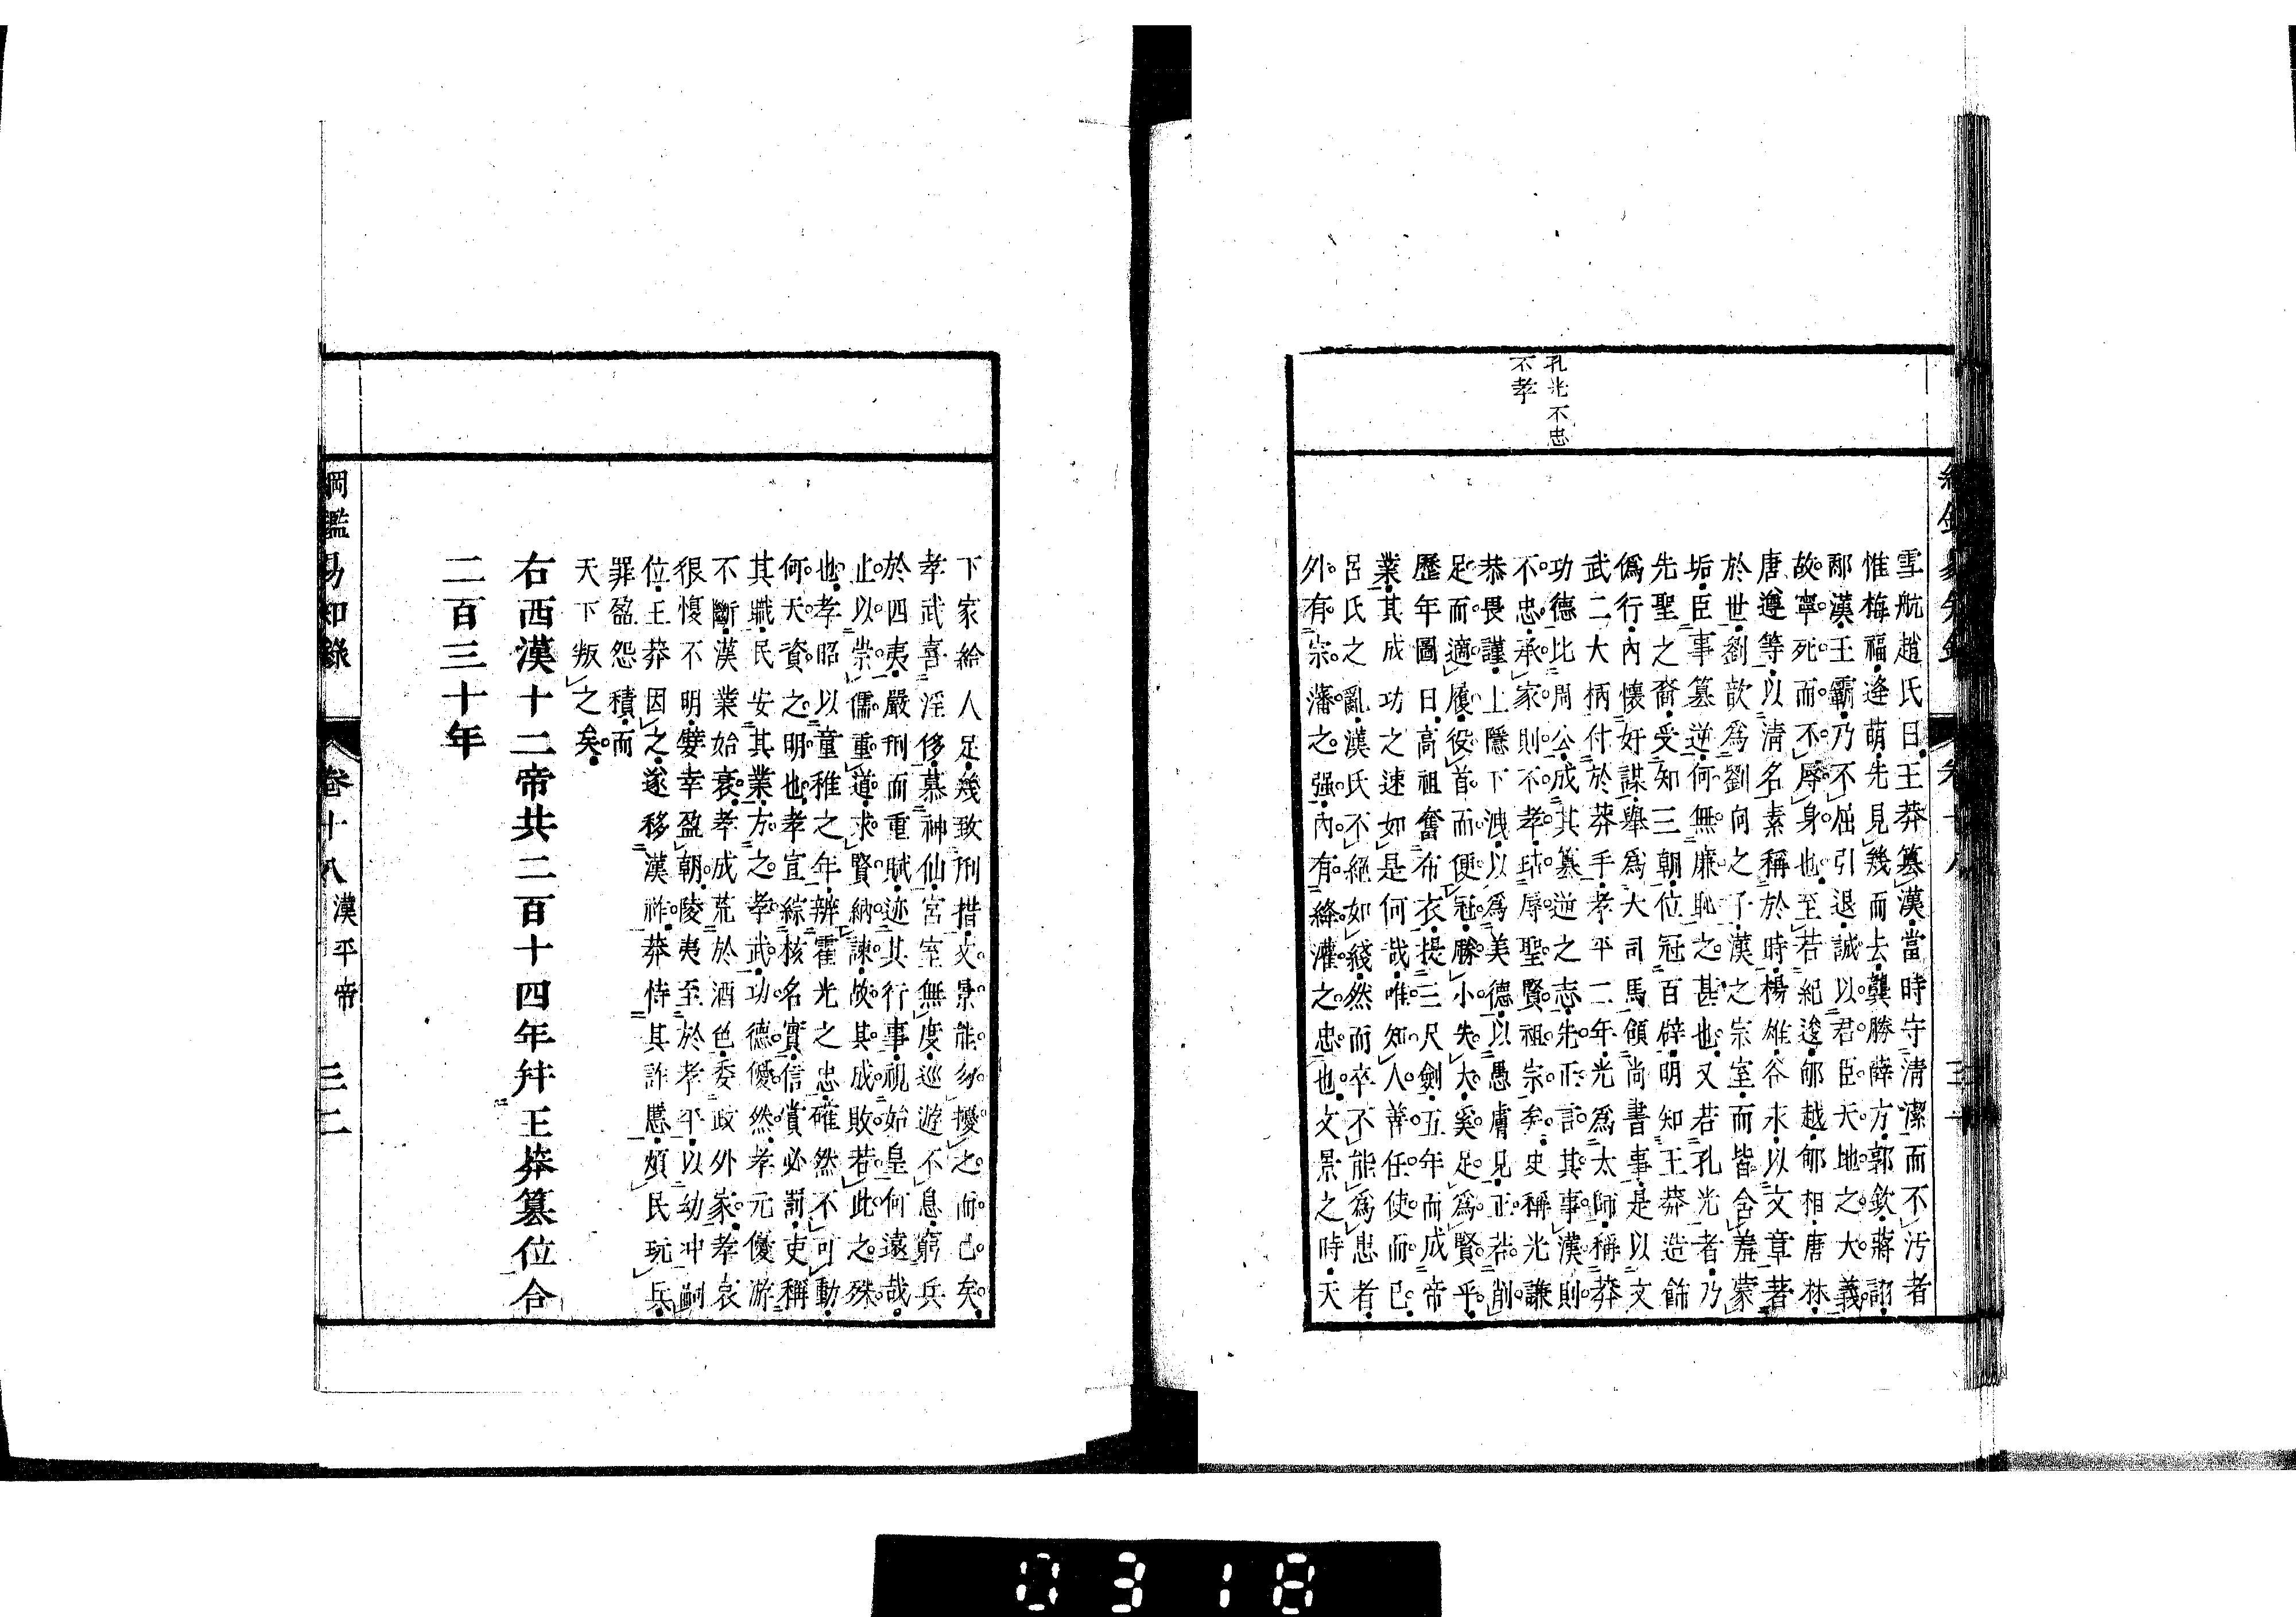 孔光不忠
不孝
雪航趙氏曰王莽篡漢當時守清潔而不汚者
惟梅福逄萌先見幾而去龔勝薛方郭欽蔣詡
郿漢王霸乃不屈引退誠以君臣天地之大義
故寧死而不辱身也至若紀逡郇越郇相唐林
唐遵等以清名素稱於時楊雄谷永以文章著
於世劉歆爲劉向之子漢之宗室而皆舍羞蒙
垢臣事篡逆何無廉恥之甚也又若孔光者乃
先聖之裔受知三朝位冠百辟明知王莽造飾
僞行內懷奸謀舉爲大司馬領尚書事是以文
武二大柄付於莽手孝平二年光爲太師稱莽
功德比周公成其篡逆之志先正言其事漢則
不忠承家則不孝玷辱聖賢祖宗矣史稱光謙
恭畏謹上隱下洩以爲美德以愚膚見正若削
足而適履役首而便冠勝小失大奚足爲賢乎
歷年圖曰高祖奮布衣提三尺劍五年而成帝
業其成功之速如是何哉唯知人善任使而已
呂氏之亂漢氏不絕如綫然而卒不能爲患者
外有宗藩之强內有絳灌之忠也文景之時天
下家給人足幾致刑措文景能勿擾之而已矣
孝武喜淫侈慕神仙宮室無度巡遊不息窮兵
於四夷嚴刑而重賦迹其行事視始皇何遠哉
止以崇儒重道求賢納諫故其成敗若此之殊
也孝昭以童稚之年辨霍光之忠確然不可動
何天資之明也孝宣綜核名實信賞必罰吏稱
其職民安其業方之孝武功德優然孝元優游
不斷漢業始衰孝成荒於酒色委政外家孝哀
很愎不明嬖幸盈朝陵夷至於孝平以幼冲嗣
位王莽因之遂移漢祚莽恃其詐慝煩民玩兵
罪盈怨積而
天下叛之矣
右西漢十二帝共二百十四年幷王莽篡位合
二百三十年
綱鑑易知錄 卷十八 漢平帝 三二
0318